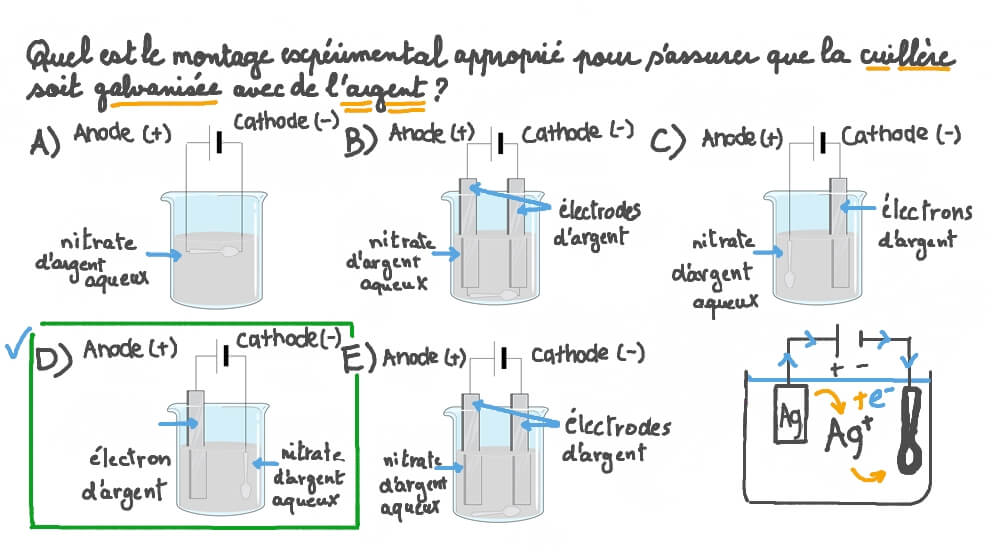 Quel est le montage expérimental approprié pour s'assurer que la cuillère
soit galvanisée avec de l'argent ?
A) Anode (+) Cathode (-)
nitrate
d'argent
aqueux
B) Anode (+) Cathode (-)
électrodes
d'argent
nitrate
d'argent
aqueux
C) Anode (+) Cathode (-)
électrons
d'argent
nitrate
d'argent
aqueux
D) Anode (+) Cathode (-)
électron
d'argent
nitrate
d'argent
aqueux
E) Anode (+) Cathode (-)
électrodes
d'argent
nitrate
d'argent
aqueux
+ -
Ag
+ e-
Ag+